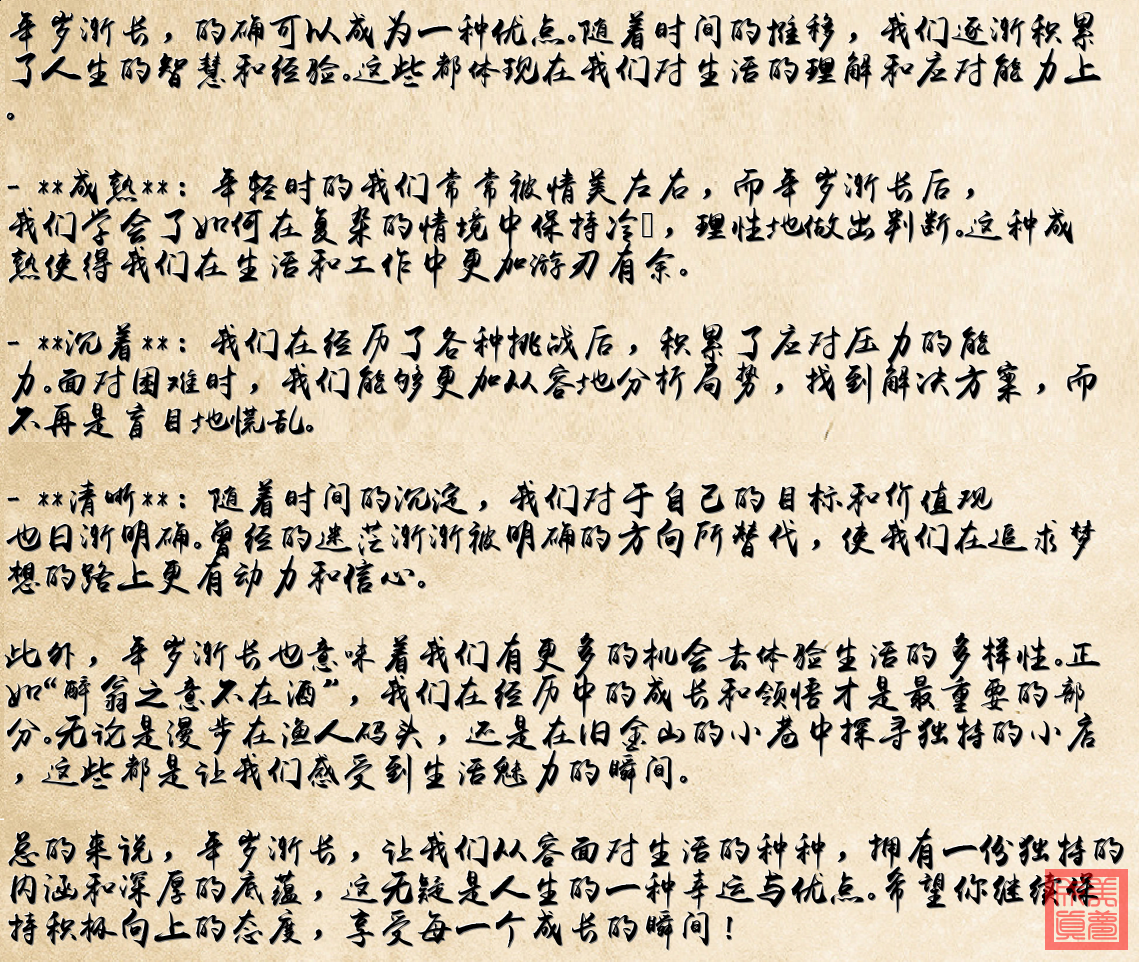 年岁渐长，的确可以成为一种优点。随着时间的推移，我们逐渐积累
了人生的智慧和经验。这些都体现在我们对生活的理解和应对能力上
。
- **成熟**：年轻时的我们常常被情美左右，而年岁渐长后，
我们学会了如何在复杂的情境中保持冷，理性地做出判断。这种成
熟使得我们在生活和工作中更加游刃有余。
- **沉着**：我们在经历了各种挑战后，积累了应对压力的能
力。面对困难时，我们能够更加从容地分析局势，找到解决方案，而
不再是盲目地慌乱。
- **清晰**：随着时间的沉淀，我们对于自己的目标和价值观
也日渐明确。曾经的迷茫渐渐被明确的方向所替代，使我们在追求梦
想的路上更有动力和信心。
此外，年岁渐长也意味着我们有更多的机会去体验生活的多样性。正
如“醉翁之意不在酒”，我们在经历中的成长和领悟才是最重要的部
分。无论是漫步在渔人码头，还是在旧金山的小巷中探寻独特的小店
，这些都是让我们感受到生活魅力的瞬间。
总的来说，年岁渐长，让我们从容面对生活的种种，拥有一份独特的
内涵和深厚的底蕴，这无疑是人生的一种幸运与优点。希望你继续保
持积极向上的态度，享受每一个成长的瞬间！